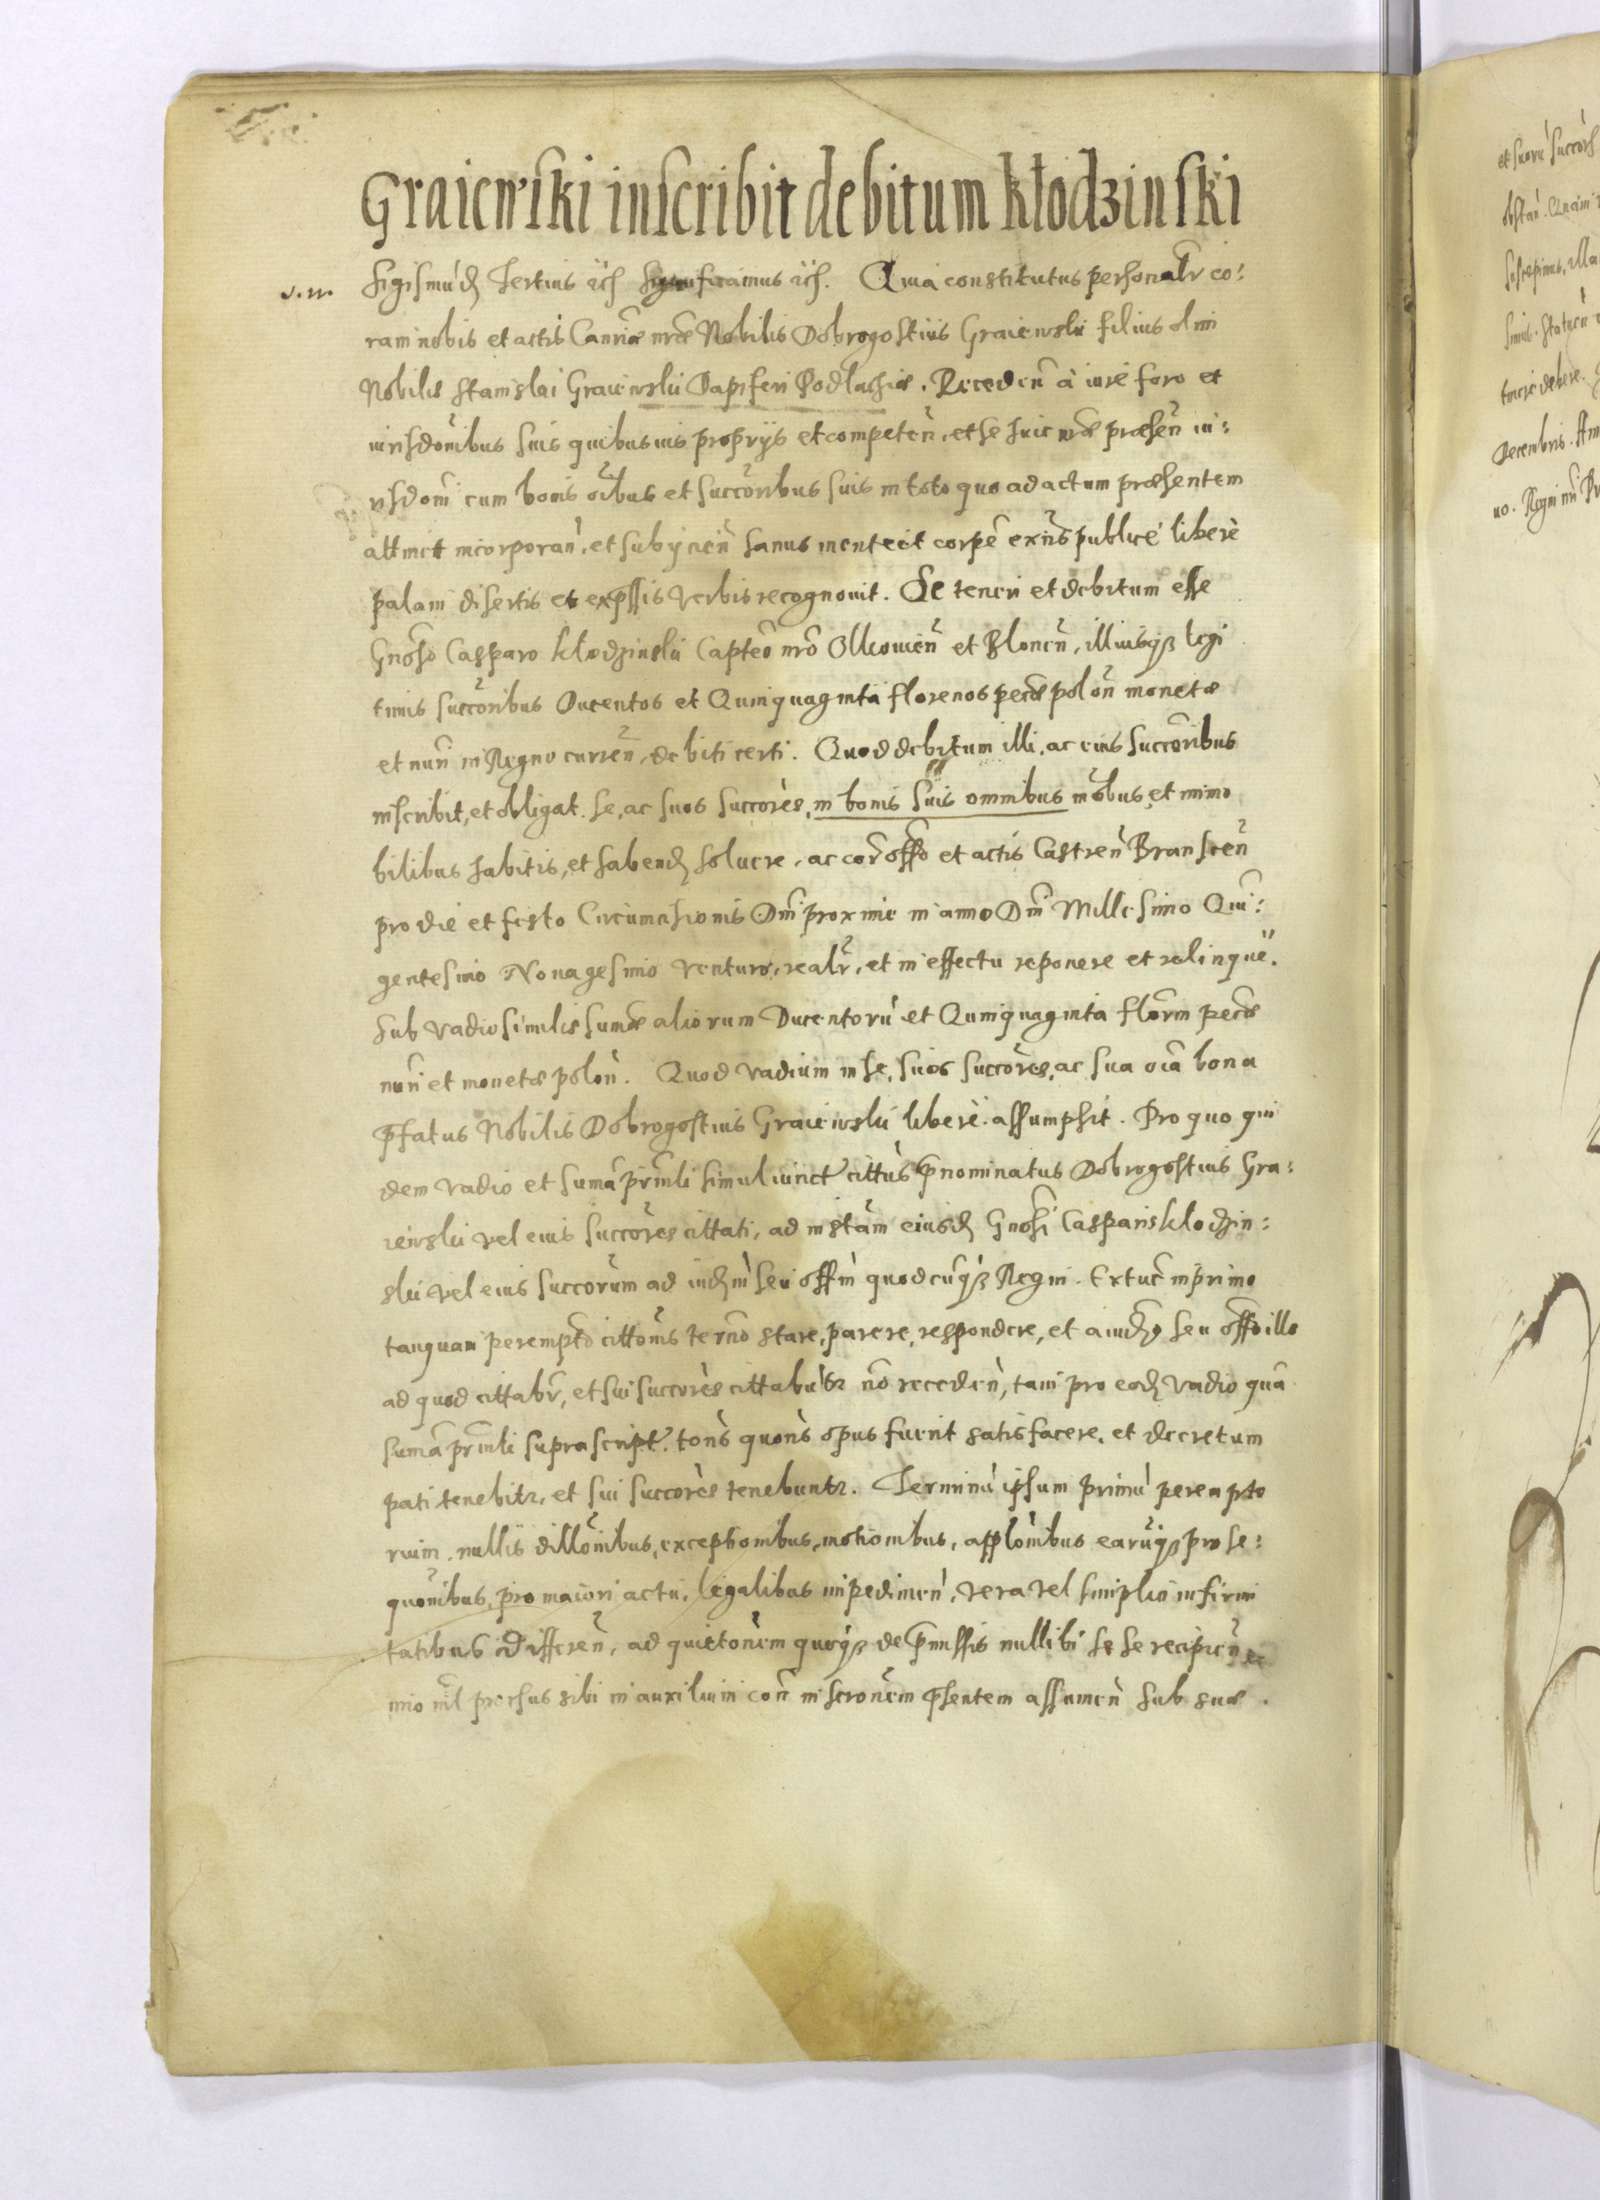 Graiewski inscribit debitum kłodzinski
Sigismūd Tertius etc significamus etc. Quia constitutus personalr co:
ram nobis et actis Canriæ nræ Nobilis Dobrogostius Graiewski filius olim
Nobilis Stanislai Graiewski Dapiferi Podlachiæ. Receden à iure foro et
iurisdonibus suis quibusuis proprijs et competen, et se huic nræ præsen iu:
risdoni cum bonis oibus et succoribus suis in toto quo ad actum præsentem
attinet incorporan, et subijcien sanus mente et corpe exñs publicè liberè
palam disertis et expssis verbis recognouit. Se teneri et debitum esse
Gnoso Casparo kłodzinski Capteo nro Olkouien et Blonen, illiusqz legi
timis succoribus Ducentos et Quinquaginta florenos pecæ polon monetæ
et nuri in Regno curren, debiti certi. Quod debitum illi, ac eius succoribus
inscribit, et obligat se, ac suos succores, in bonis suis omnibus mobus et immo
bilibus habitis, et habend soluere, ac cor offo et actis Castren Branscen
pro die et festo Circumcisionis Dni proxime in anno Dni Millesimo Quin:
gentesimo Nonagesimo venturo, realr, et in effectu reponere et relinque.
Sub vadio similis sumæ aliorum Ducentorū et Quinquaginta floren pecæ
nuri et monetæ polon. Quod vadium in se, suos succores, ac sua oia bona
pfatus Nobilis Dobrogostius Graiewski liberè assumpsit. Pro quo qui
dem vadio et suma prinli simul iunct cittus pnominatus Dobrogostius Gra:
iewski vel eius succores cittati, ad instam eiusd Gnosi Casparis kłodzin:
ski vel eius succorum ad iudm seu offm quodcunqz Regni. Ex tuc in primo
tanquam perempto cittonis terno stare, parere, respondere, et a iudo seu offo illo
ad quod cittabr, et sui succores cittabutr no receden, tam pro eod vadio qua
suma prinli suprascript. tons quons opus fuerit satisfacere, et decretum
pati tenebitr, et sui succores tenebuntr. Terminū ipsum primū perempto
rium nullis dillonibus, exceptionibus, motionibus, applonibus earuqz prose:
quonibus, pro maiori actu, legalibus impedimen, vera vel simplici infirmi
tatibus differen, ad quietonem quoqz de pmissis nullibi se se recipien
imo nil prorsus sibi in auxilium con inscronem psentem assumen sub suæ